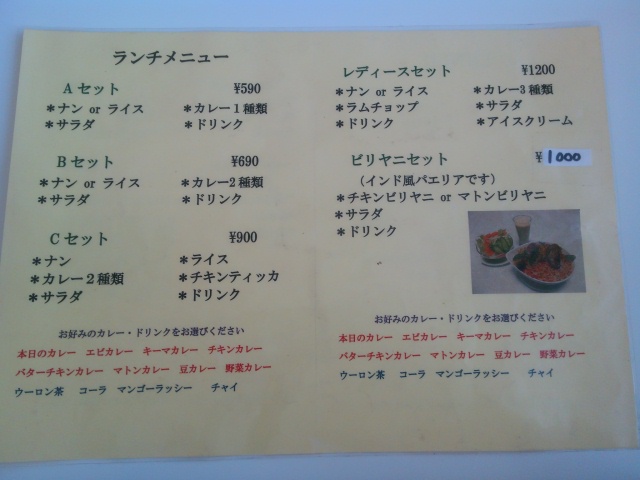 ランチメニュー
Aセット ¥590
＊ナン or ライス ＊カレー1種類
＊サラダ ＊ドリンク
Bセット ¥690
＊ナン or ライス ＊カレー2種類
＊サラダ ＊ドリンク
Cセット ¥900
＊ナン ＊ライス
＊カレー２種類 ＊チキンティッカ
＊サラダ ＊ドリンク
お好みのカレー・ドリンクをお選びください
本日のカレー エビカレー キーマカレー チキンカレー
バターチキンカレー マトンカレー 豆カレー 野菜カレー
ウーロン茶 コーラ マンゴーラッシー チャイ
レディースセット ¥1200
＊ナン or ライス ＊カレー3種類
＊ラムチョップ ＊サラダ
＊ドリンク ＊アイスクリーム
ビリヤニセット ¥1000
（インド風パエリアです）
＊チキンビリヤニ or マトンビリヤニ
＊サラダ
＊ドリンク
お好みのカレー・ドリンクをお選びください
本日のカレー エビカレー キーマカレー チキンカレー
バターチキンカレー マトンカレー 豆カレー 野菜カレー
ウーロン茶 コーラ マンゴーラッシー チャイ